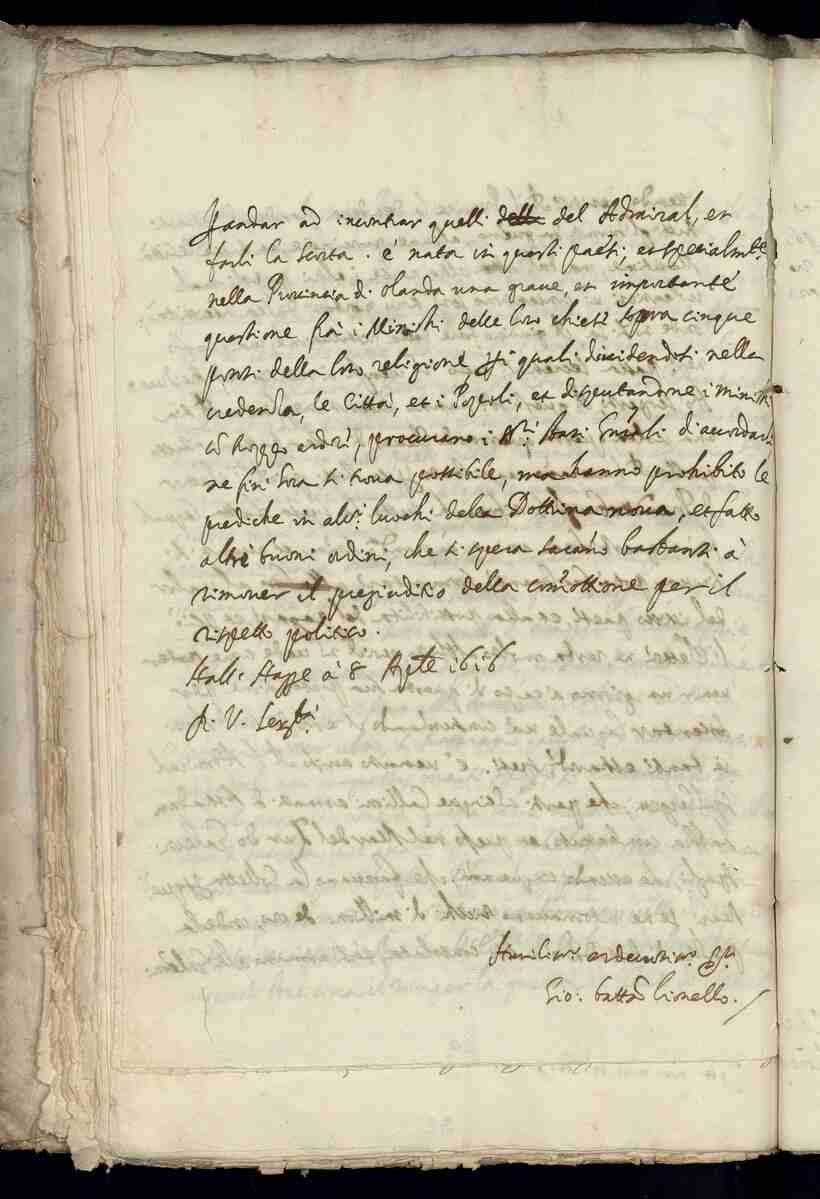 p andar ad incontrar quelli della del Admiral, et
farli la scorta. è nata in questi paesi, et specialmte
nella Provincia di Olanda una grave, et importante
questione frà i Ministri delle loro chiese sopra cinque
ponti della loro religione, p i quali dividendosi nella
credenza, le Città, et i Popoli, et disputandone i ministri
cō troppo ardore, procurano i SSri Stati Gnāli di accordar,
ne fin' hora si trova possibile, ma hanno prohibito le
prediche in alcī luochi della Dottrina nova, et fatto
altri buoni ordini, che si spera sarāno bastanti à
rimover il pregiuditio della com̄ottione per il
rispetto politico.
Hall' Haga à 8 Aple 1616
Di V. Sertà
Humilimo et devotmo Sre
Gio: Battā Lionello.